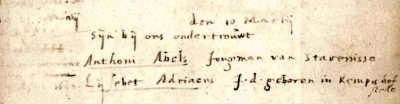 den 10 Martij
Sijn bij ons ondertrouwt
Anthoni Abels Jongman van Stavenisse
Lijsebet Adriaens J. d. geboren in Kempens hof
stede